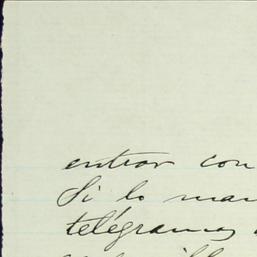 entrar con
Si lo man
telégramas